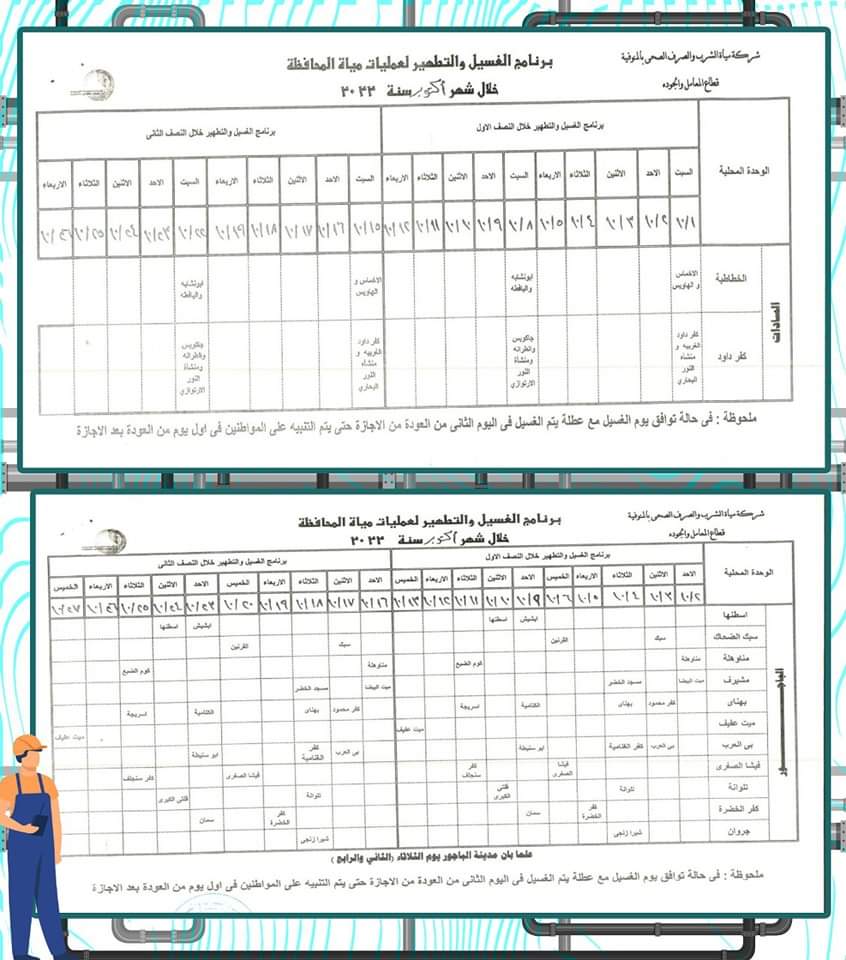 شركة مياة الشرب والصرف الصحى بالمنوفية
قطاع المعامل والجوده
برنامج الغسيل والتطهير لعمليات مياة المحافظة
خلال شهر أكتوبر سنة ٢٠٢٢
الوحدة المحلية
برنامج الغسيل والتطهير خلال النصف الاول
برنامج الغسيل والتطهير خلال النصف الثانى
السبت الاحد الاثنين الثلاثاء الاربعاء السبت الاحد الاثنين الثلاثاء الاربعاء السبت الاحد الاثنين الثلاثاء الاربعاء السبت الاحد الاثنين الثلاثاء الاربعاء
١٠/١ ١٠/٢ ١٠/٣ ١٠/٤ ١٠/٥ ١٠/٨ ١٠/٩ ١٠/١٠ ١٠/١١ ١٠/١٢ ١٠/١٥ ١٠/١٦ ١٠/١٧ ١٠/١٨ ١٠/١٩ ١٠/٢٢ ١٠/٢٣ ١٠/٢٤ ١٠/٢٥ ١٠/٢٦
السادات
الخطاطبة
الاخماس و الهاويس
ابونشابه والياقطه
الاخماس و الهاويس
ابونشابه والياقطه
كفر داود
كفر داود الغربيه و منشأه النور البحاري
جاكويس والطرانه ومنشأة النور الارتوازي
كفر داود الغربيه و منشأه النور البحاري
جاكويس والطرانه ومنشأة النور الارتوازي
ملحوظة : فى حالة توافق يوم الغسيل مع عطلة يتم الغسيل فى اليوم الثانى من العودة من الاجازة حتى يتم التنبيه على المواطنين فى اول يوم من العودة بعد الاجازة
شركة مياة الشرب والصرف الصحى بالمنوفية
قطاع المعامل والجوده
برنامج الغسيل والتطهير لعمليات مياة المحافظة
خلال شهر أكتوبر سنة ٢٠٢٢
الوحدة المحلية
برنامج الغسيل والتطهير خلال النصف الاول
برنامج الغسيل والتطهير خلال النصف الثانى
الاحد الاثنين الثلاثاء الاربعاء الخميس الاحد الاثنين الثلاثاء الاربعاء الخميس الاحد الاثنين الثلاثاء الاربعاء الخميس الاحد الاثنين الثلاثاء الاربعاء الخميس
١٠/٢ ١٠/٣ ١٠/٤ ١٠/٥ ١٠/٦ ١٠/٩ ١٠/١٠ ١٠/١١ ١٠/١٢ ١٠/١٣ ١٠/١٦ ١٠/١٧ ١٠/١٨ ١٠/١٩ ١٠/٢٠ ١٠/٢٣ ١٠/٢٤ ١٠/٢٥ ١٠/٢٦ ١٠/٢٧
الباجور
اسطنها ابشيش اسطنها ابشيش اسطنها
سبك الضحاك سبك القرنين سبك القرنين
مناوهلة مناوهلة كوم الضبع مناوهلة كوم الضبع
مشيرف ميت البيضا مسجد الخضر ميت البيضا مسجد الخضر
بهناى كفر محمود بهناى الكتامية اسريجة كفر محمود بهناى الكتامية اسريجة
ميت عفيف ميت عفيف ميت عفيف
بى العرب بى العرب كفر الغنامية ابو سنيطة بى العرب كفر الغنامية ابو سنيطة
فيشا الصغرى فيشا الصغرى كفر سنجلف فيشا الصغرى كفر سنجلف
تلوانة تلوانة قلتى الكبرى تلوانة قلتى الكبرى
كفر الخضرة كفر الخضرة سمان كفر الخضرة سمان
جروان شبرا زنجى شبرا زنجى
علما بان مدينة الباجور يوم الثلاثاء (الثاني والرابع )
ملحوظة : فى حالة توافق يوم الغسيل مع عطلة يتم الغسيل فى اليوم الثانى من العودة من الاجازة حتى يتم التنبيه على المواطنين فى اول يوم من العودة بعد الاجازة